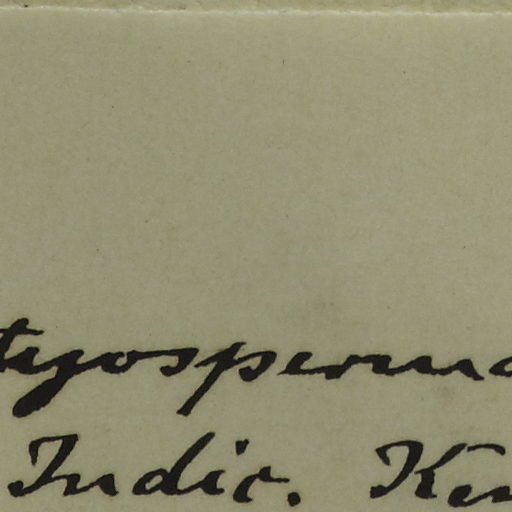 tyosperma
Indic. Ken